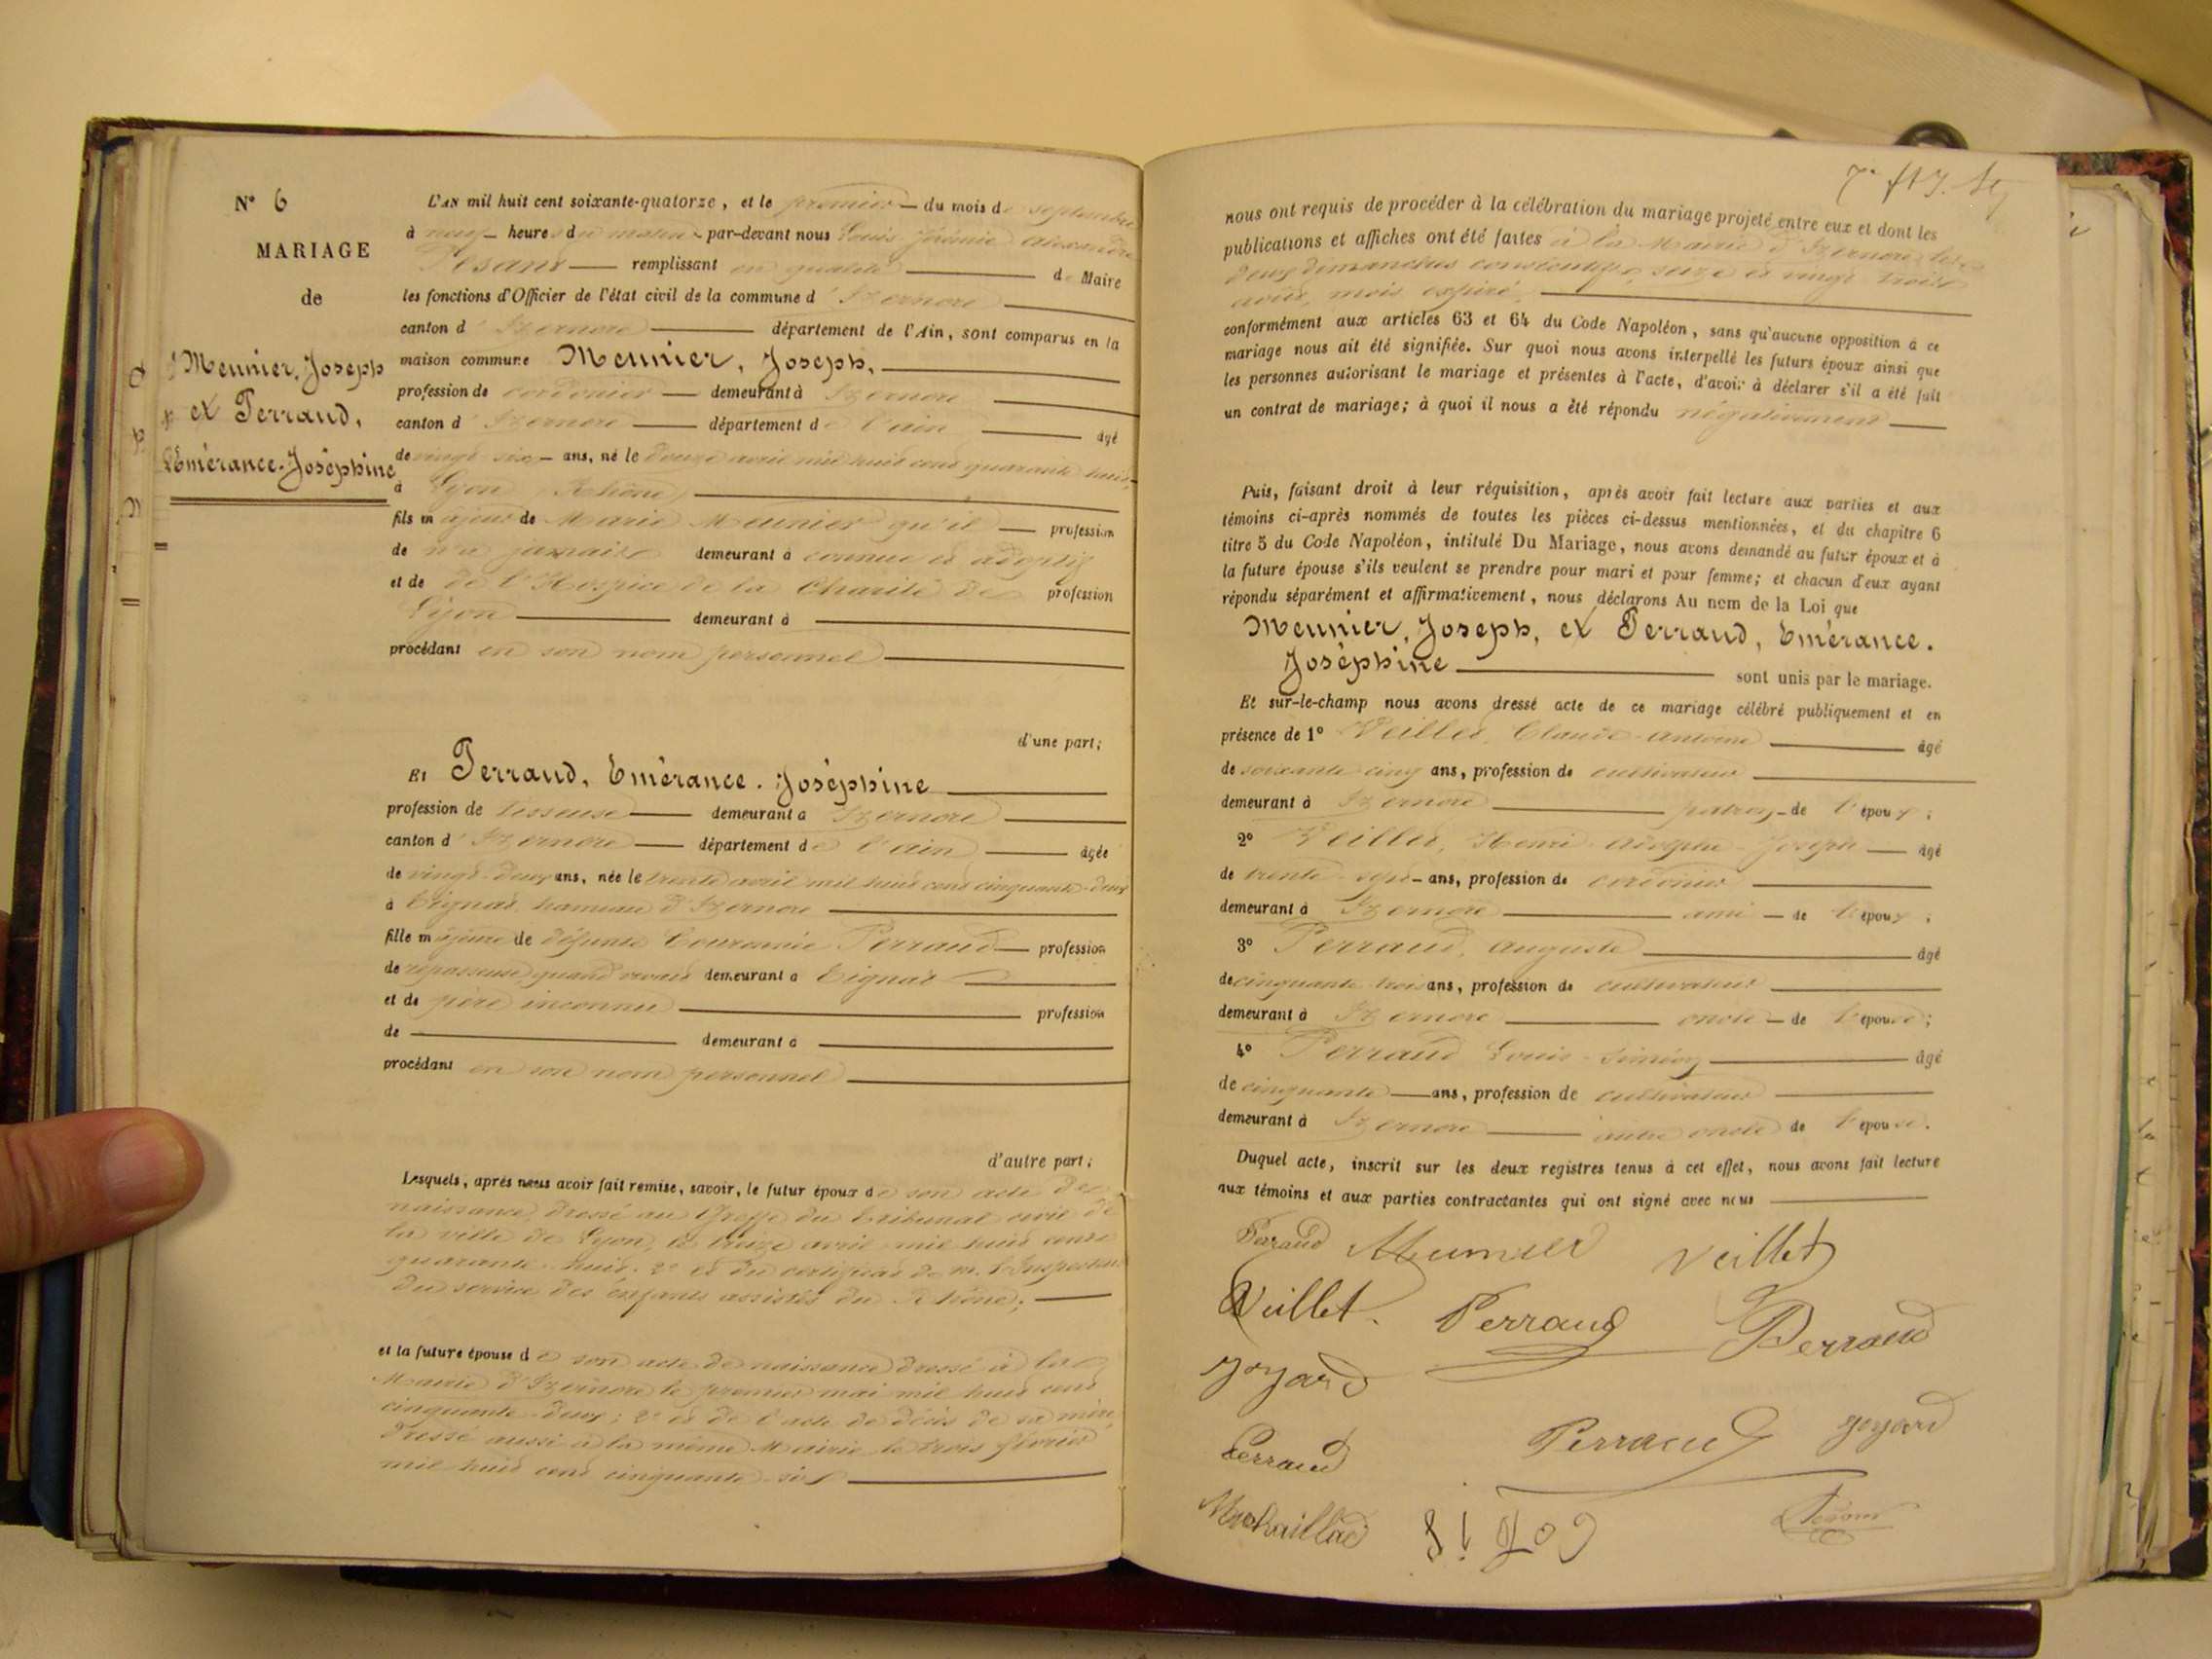 N° 6
MARIAGE
de
Meunier, Joseph
et Perraud,
Emérance-Joséphine
L'AN mil huit cent soixante-quatorze, et le premier du mois de septembre
à neuf heures du matin par-devant nous Louis Jérémie Alexandre
remplissant en qualité de Maire
les fonctions d'Officier de l'état civil de la commune d'Izernore
canton d'Izernore département de l'Ain, sont comparus en la
maison commune Meunier, Joseph,
profession de cordonier demeurant à Izernore
canton d'Izernore département de l'ain âgé
de vingt six ans, né le douze avril mil huit cent quarante huit
à Lyon (Rhône)
fils majeur de Marie Meunier qu'il profession
de n'a jamais demeurant à connue et adoptif
et de de l'Hospice de la Charité de profession
Lyon demeurant à
procédant en son nom personnel
d'une part;
Et Perraud, Emérance-Joséphine
profession de tisseuse demeurant à Izernore
canton d'Izernore département de l'ain âgée
de vingt-deux ans, née le trente avril mil huit cent cinquante-deux
à Tignat hameau d'Izernore
fille majeure de défunte Couronnée Perraud profession
de repasseuse quand vivait demeurant à Tignat
et de père inconnu profession
de demeurant à
procédant en son nom personnel
d'autre part;
Lesquels, après nous avoir fait remise, savoir, le futur époux de son acte de
naissance dressé au Greffe du tribunal civil de
la ville de Lyon, le treize avril mil huit cent
quarante-huit. 2° et du certificat de m. l'Inspecteur
du service des enfants assistés du Rhône;
et la future épouse de son acte de naissance dressé à la
Mairie d'Izernore le premier mai mil huit cent
cinquante-deux; 2° et de l'acte de décès de sa mère
dressé aussi à la même Mairie le trois février
mil huit cent cinquante-six
nous ont requis de procéder à la célébration du mariage projeté entre eux et dont les
publications et affiches ont été faites à la Mairie d'Izernore les
deux dimanches consécutifs, seize et vingt trois
août, mois expiré,
conformément aux articles 63 et 64 du Code Napoléon, sans qu'aucune opposition à ce
mariage nous ait été signifiée. Sur quoi nous avons interpellé les futurs époux ainsi que
les personnes autorisant le mariage et présentes à l'acte, d'avoir à déclarer s'il a été fait
un contrat de mariage; à quoi il nous a été répondu négativement
Puis, faisant droit à leur réquisition, après avoir fait lecture aux parties et aux
témoins ci-après nommés de toutes les pièces ci-dessus mentionnées, et du chapitre 6
titre 5 du Code Napoléon, intitulé Du Mariage, nous avons demandé au futur époux et à
la future épouse s'ils veulent se prendre pour mari et pour femme; et chacun d'eux ayant
répondu séparément et affirmativement, nous déclarons Au nom de la Loi que
Meunier, Joseph, et Perraud, Emérance-
Joséphine sont unis par le mariage.
Et sur-le-champ nous avons dressé acte de ce mariage célébré publiquement et en
présence de 1° Veillet, Claude-Antoine âgé
de soixante cinq ans, profession de cultivateur
demeurant à Izernore patron de l'époux;
2° Veillet, Henri-Adolphe-Joseph âgé
de trente-sept ans, profession de cordonier
demeurant à Izernore ami de l'époux;
3° Perraud, Auguste âgé
de cinquante trois ans, profession de cultivateur
demeurant à Izernore oncle de l'épouse;
4° Perraud Louis-Siméon âgé
de cinquante ans, profession de cultivateur
demeurant à Izernore autre oncle de l'épouse.
Duquel acte, inscrit sur les deux registres tenus à cet effet, nous avons fait lecture
aux témoins et aux parties contractantes qui ont signé avec nous
Meunier Veillet
Veillet. Perraud Perraud
Goyard
Perraud Perraud goyard